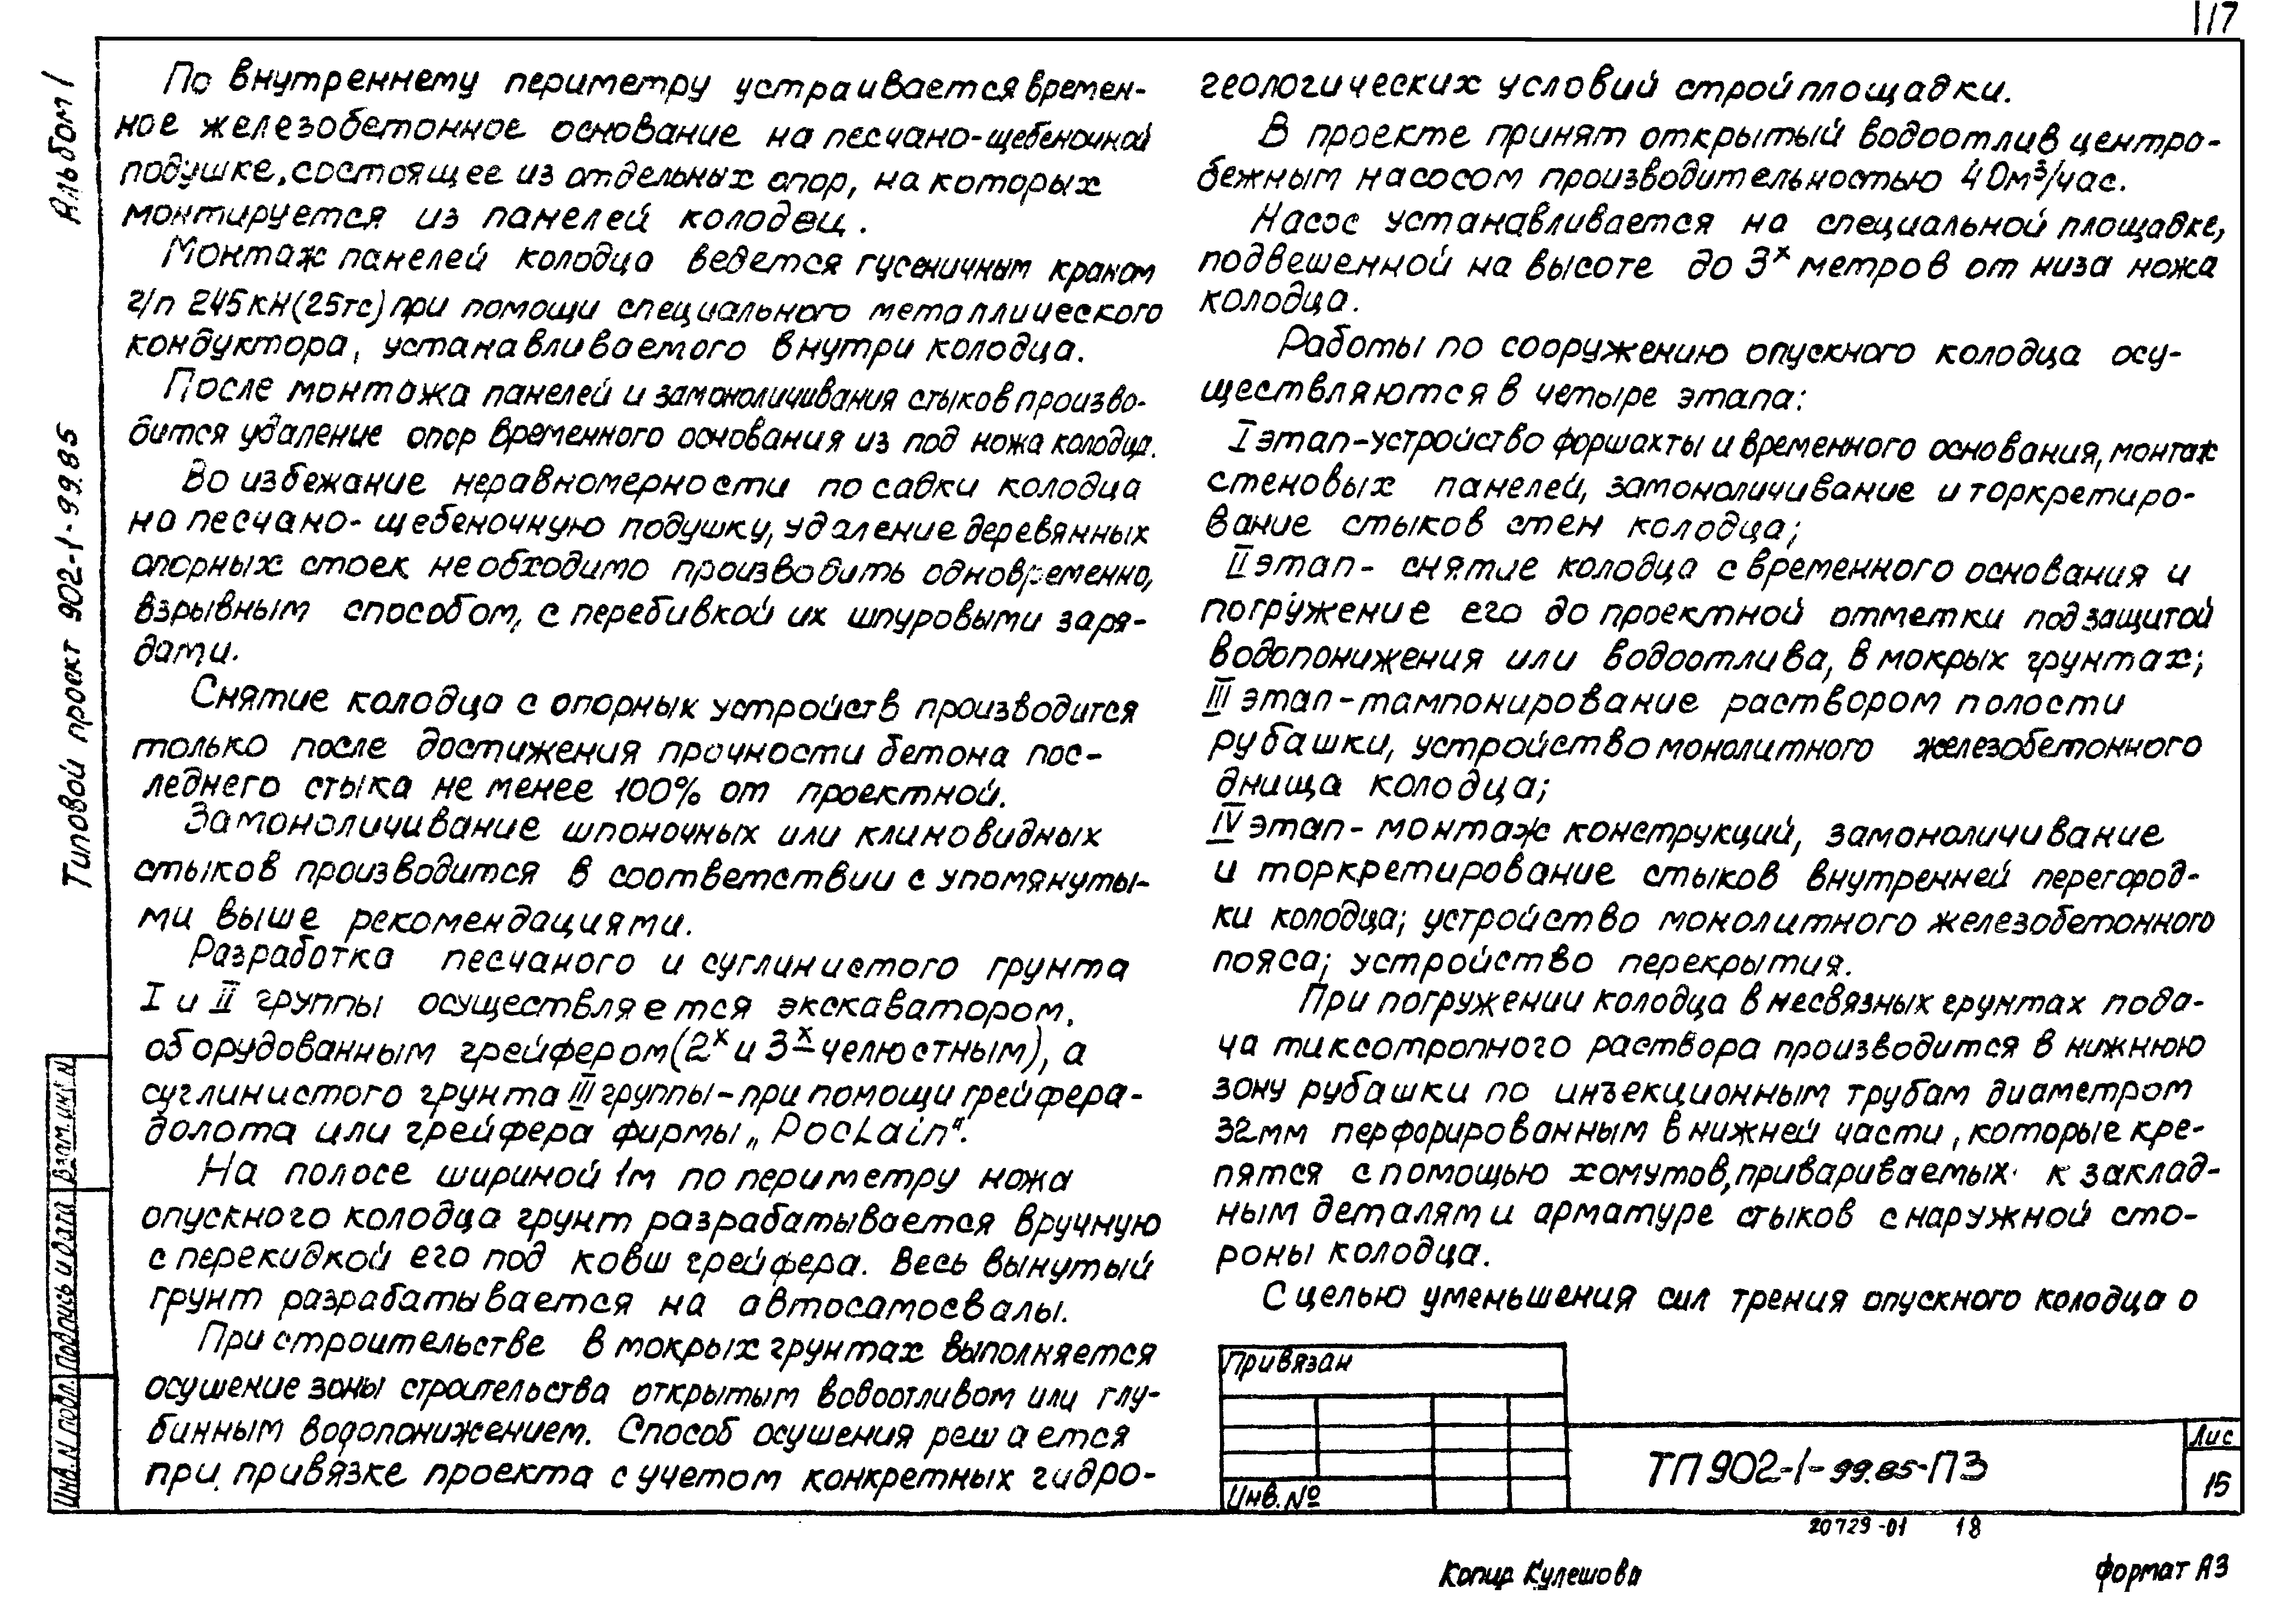 117
Альбом 1
Типовой проект 902-1-99.85
По внутреннему периметру устраивается времен-
ное железобетонное основание на песчано-щебеночной
подушке, состоящее из отдельных опор, на которых
монтируется из панелей колодец.
Монтаж панелей колодца ведется гусеничным краном
г/п 245кН(25тс) при помощи специального металлического
кондуктора, устанавливаемого внутри колодца.
После монтажа панелей и замоноличивания стыков произво-
дится удаление опор временного основания из под ножа колодца.
Во избежание неравномерности посадки колодца
на песчано-щебеночную подушку, удаление деревянных
опорных стоек необходимо производить одновременно,
взрывным способом, с перебивкой их шпуровыми заря-
дами.
Снятие колодца с опорных устройств производится
только после достижения прочности бетона пос-
леднего стыка не менее 100% от проектной.
Замоноличивание шпоночных или клиновидных
стыков производится в соответствии с упомянуты-
ми выше рекомендациями.
Разработка песчаного и суглинистого грунта
I и II группы осуществляется экскаватором,
оборудованным грейфером (2х и 3х-челюстным), а
суглинистого грунта III группы - при помощи грейфера-
долота или грейфера фирмы „Poclain".
На полосе шириной 1м по периметру ножа
опускного колодца грунт разрабатывается вручную
с перекидкой его под ковш грейфера. Весь вынутый
грунт разрабатывается на автосамосвалы.
При строительстве в мокрых грунтах выполняется
осушение зоны строительства открытым водоотливом или глу-
бинным водопонижением. Способ осушения решается
при привязке проекта с учетом конкретных гидро-
геологических условий стройплощадки.
В проекте принят открытый водоотлив центро-
бежным насосом производительностью 40м³/час.
Насос устанавливается на специальной площадке,
подвешенной на высоте до 3х метров от низа ножа
колодца.
Работы по сооружению опускного колодца осу-
ществляются в четыре этапа:
I этап-устройство форшахты и временного основания, монтаж
стеновых панелей, замоноличивание и торкретиро-
вание стыков стен колодца;
II этап- снятие колодца с временного основания и
погружение его до проектной отметки под защитой
водопонижения или водоотлива, в мокрых грунтах;
III этап-тампонирование раствором полости
рубашки, устройство монолитного железобетонного
днища колодца;
IV этап- монтаж конструкций, замоноличивание
и торкретирование стыков внутренней перегород-
ки колодца; устройство монолитного железобетонного
пояса; устройство перекрытия.
При погружении колодца в несвязных грунтах пода-
ча тиксотропного раствора производится в нижнюю
зону рубашки по инъекционным трубам диаметром
32мм перфорированным в нижней части, которые кре-
пятся с помощью хомутов, привариваемых к заклад-
ным деталям и арматуре стыков с наружной сто-
роны колодца.
С целью уменьшения сил трения опускного колодца о
Инв. N подл. Подпись и дата Взам. инв. N
Привязан
Инв. №
ТП 902-1-99.85-ПЗ
Лис
15
20729-01 18
Копир Кулешова
Формат А3